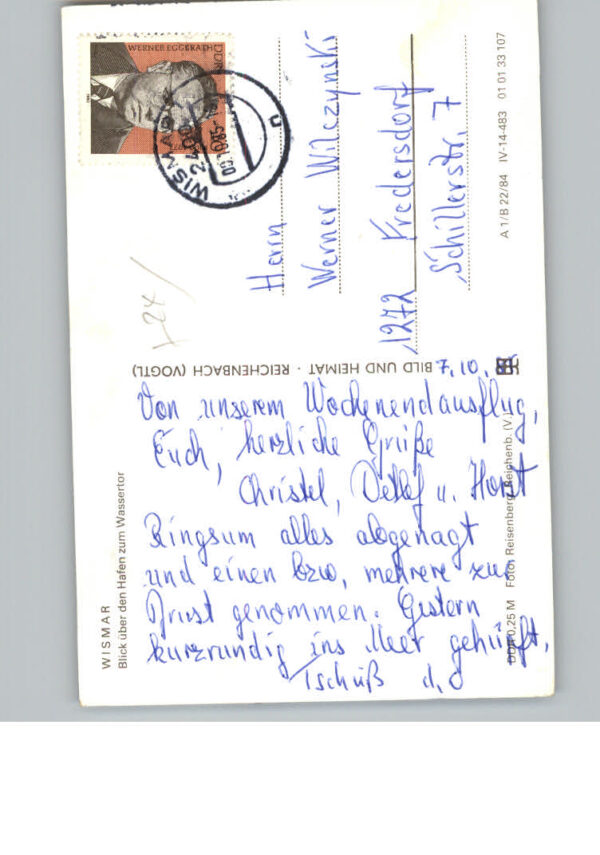 WISMAR
Blick über den Hafen zum Wassertor
7.10.85
Von unserem Wochenendausflug,
Euch, herzliche Grüße
Christel, Detlef u. Horst
Ringsum alles abgenagt
und einen bzw. mehrere zur
Brust genommen. Gestern
kurzrundig ins Meer gehüpft,
Tschüß d.O
BILD UND HEIMAT · REICHENBACH (VOGTL)
DDR 0,25 M Foto: Reisenberg, Reichenb. (V.)
WERNER EGGERATH
DDR
WISMAR
2400
Herrn
Werner Wilczynski
1272 Fredersdorf
Schillerstr. 7
A 1/B 22/84 IV-14-483 01 01 33 107